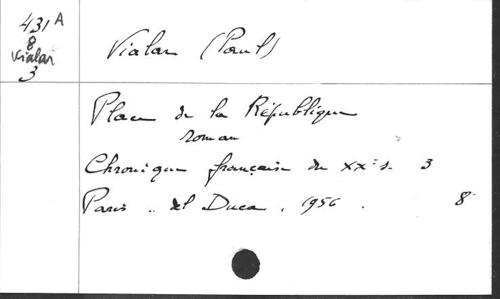 431 A
8
Vialar
3
Vialar (Paul)
Place de la République
roman
Chronique française du XXe s. 3
Paris . del Duca . 1956 . 8